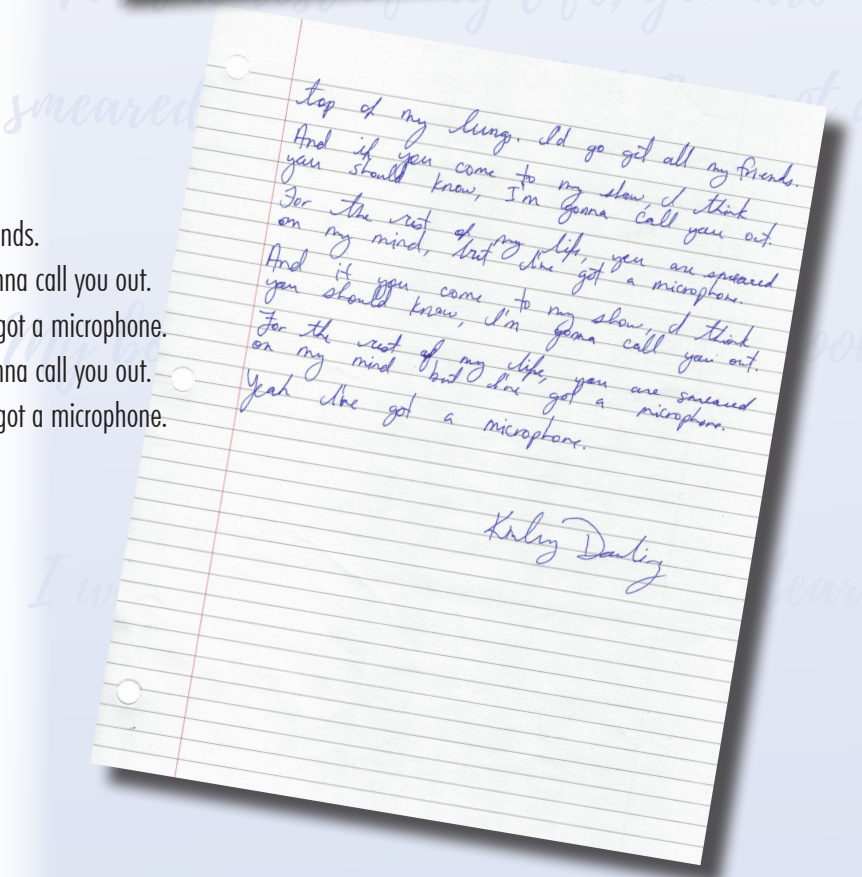 smeared
nds.
nna call you out.
got a microphone.
nna call you out.
got a microphone.
top of my lung. I'd go get all my friends.
And if you come to my show, I think
you should know, I'm gonna call you out.
For the rest of my life, you are smeared
on my mind, but I've got a microphone.
And if you come to my show, I think
you should know, I'm gonna call you out.
For the rest of my life, you are smeared
on my mind but I've got a microphone.
Yeah I've got a microphone.
Darling